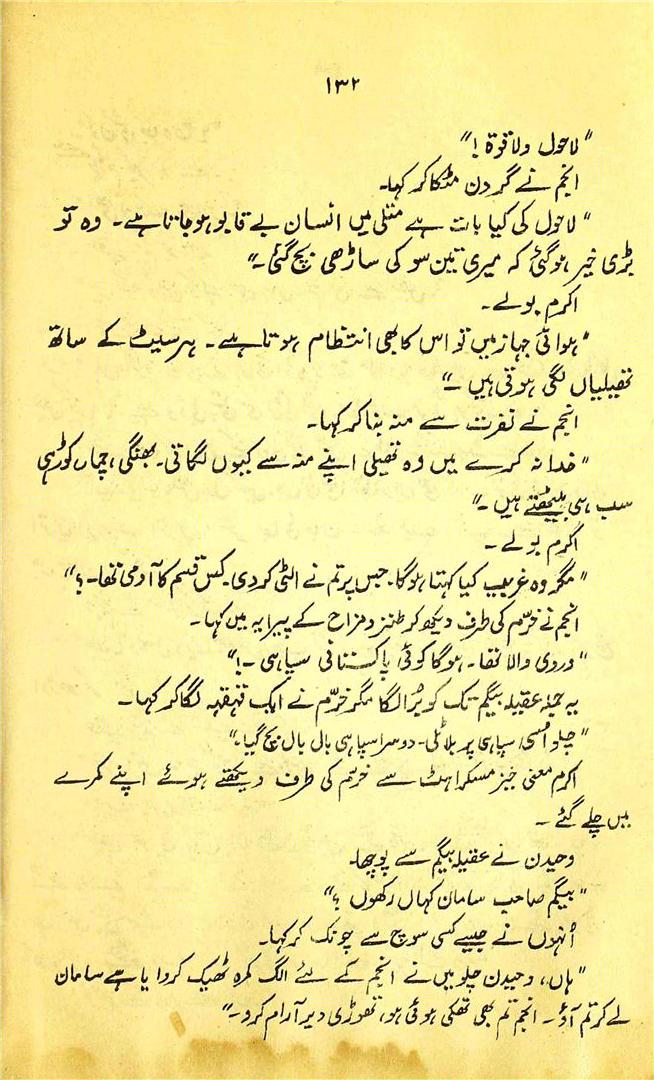 ۱۳۲
"لاحول ولا قوۃ !"
انجم نے گردن مٹکا کر کہا۔
"لاحول کی کیا بات ہے متلی میں انسان بے قابو ہو جاتا ہے۔ وہ تو
بڑی خیر ہو گئی کہ میری تین سو کی ساڑھی بچ گئی۔"
اکرم بولے۔
"ہوائی جہاز میں تو اس کا بھی انتظام ہوتا ہے۔ ہر سیٹ کے ساتھ
تھیلیاں لگی ہوتی ہیں۔"
انجم نے نفرت سے منہ بنا کر کہا۔
"خدا نہ کرے میں وہ تھیلی اپنے منہ سے کیوں لگاتی۔ بھنگی، چمار، کوڑھی
سب ہی بیٹھتے ہیں۔"
اکرم بولے۔
"مگر وہ غریب کیا کہتا ہوگا۔ جس پر تم نے الٹی کر دی۔ کس قسم کا آدمی تھا۔؟"
انجم نے خرّم کی طرف دیکھ کر طنز و مزاح کے پیرایہ میں کہا۔
"وردی والا تھا۔ ہوگا کوئی پاکستانی سپاہی۔!"
یہ جملہ عقیلہ بیگم تک کو بُرا لگا مگر خرّم نے ایک قہقہہ لگا کر کہا۔
"چلو اُسی سپاہی پر بلا ٹلی۔ دوسرا سپاہی بال بال بچ گیا۔"
اکرم معنی خیز مسکراہٹ سے خرّم کی طرف دیکھتے ہوئے اپنے کمرے
میں چلے گئے۔
وحیدن نے عقیلہ بیگم سے پوچھا۔
"بیگم صاحب سامان کہاں رکھوں ؟"
اُنہوں نے جیسے کسی سوچ سے چونک کر کہا۔
"ہاں، وحیدن چلو میں نے انجم کے لئے الگ کمرہ ٹھیک کروایا ہے سامان
لے کر تم آؤ۔ انجم تم بھی تھکی ہوئی ہو، تھوڑی دیر آرام کرو۔"